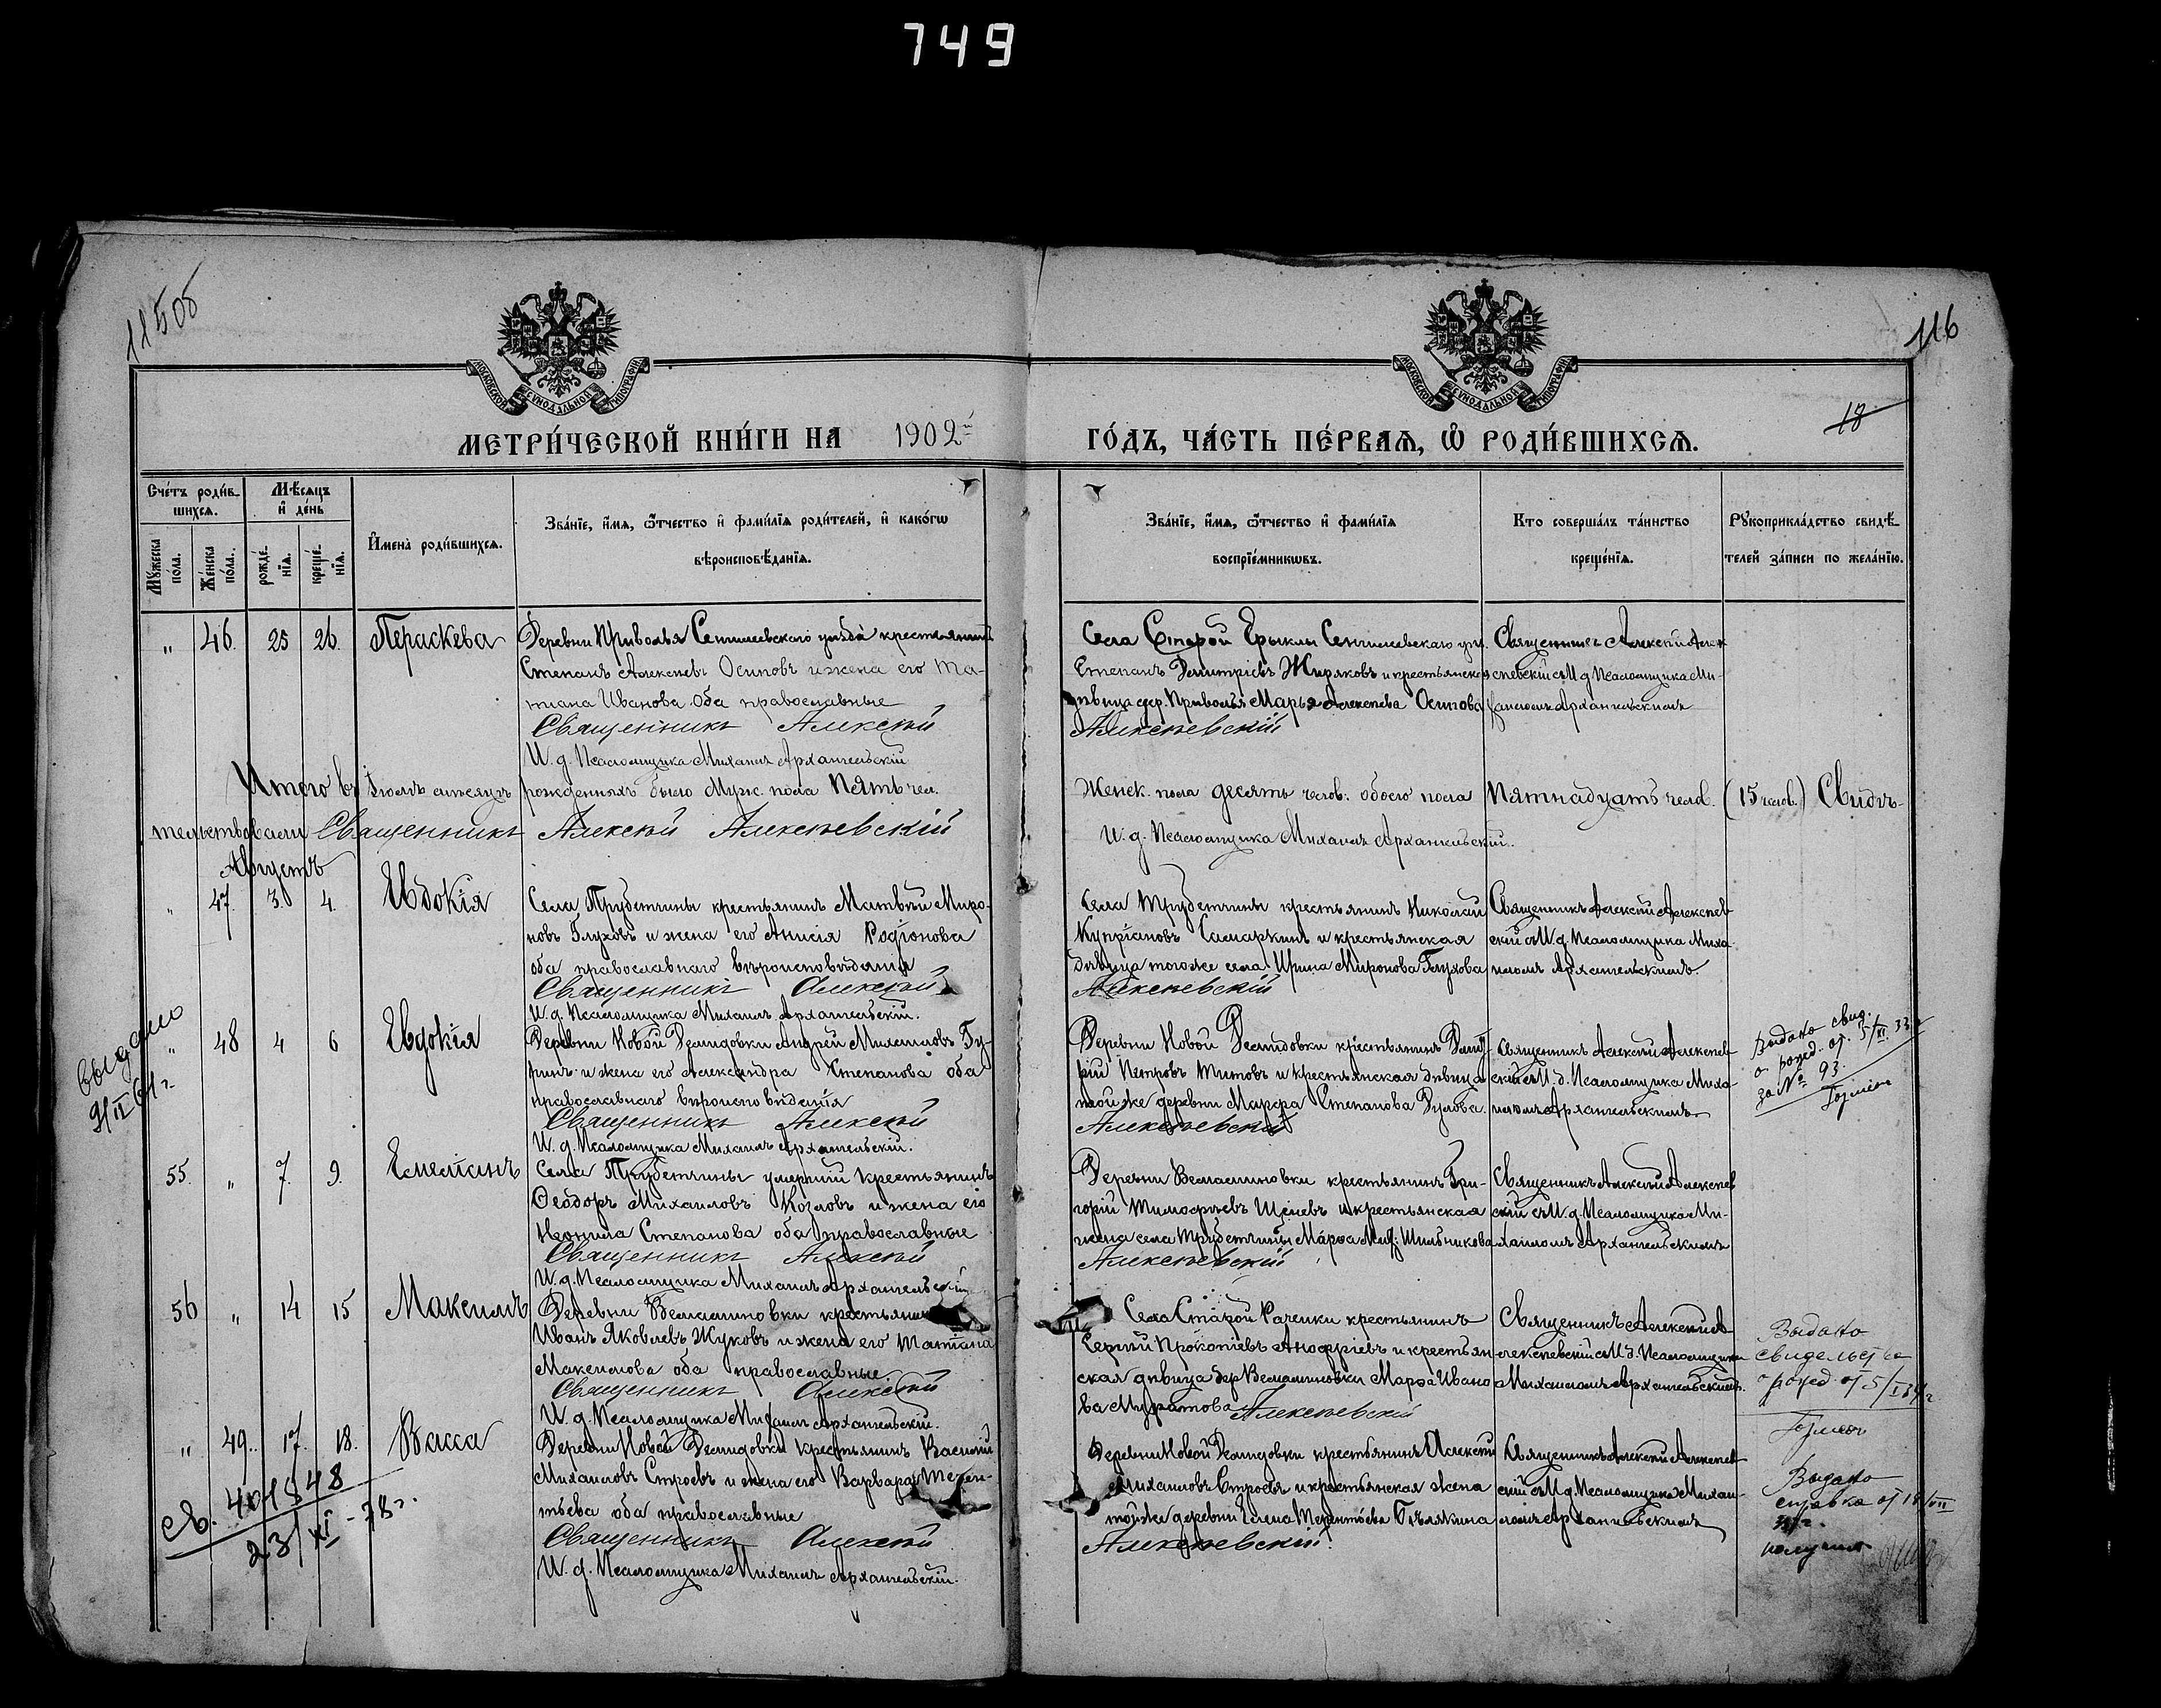 749
116
18
МОСКОВСКОЙ СѴНОДАЛЬНОЙ ТИПОГРАФІИ
МОСКОВСКОЙ СѴНОДАЛЬНОЙ ТИПОГРАФІИ
МЕТРИ́ЧЕСКОЙ КНИ́ГИ НА 1902й ГО́ДЪ, ЧА́СТЬ ПЕ́РВАЯ, Ѡ РОДИ́ВШИХСЯ.
Сче́тъ роди́в-
шихся.
Мꙋ́жеска по́ла.
Же́нска по́ла.
Мѣ́сяцъ и де́нь
рожде́-
нїя.
креще́-
нїя.
И҆мена̀ роди́вшихся.
Зва́нїе, и҆́мя, ѻ҆́тчество и҆ фами́лїя роди́телей, и҆ како́гѡ
вѣроисповѣ́данїя.
Зва́нїе, и҆́мя, ѻ҆́тчество и҆ фами́лїя
воспрїе́мникѡвъ.
Кто соверша́лъ та́инство
креще́нїя.
Рꙋкоприкла́дство свидѣ́-
телей за́писи по жела́нїю.
" 46. 25 26. Параскева
Деревни Приволья Сенгилеевскаго уѣзда крестьянинъ
Степанъ Алексѣевъ Осиповъ и жена его Та-
тіана Иванова оба православные
Священникъ Алексѣй
И. д. Псаломщика Михаилъ Архангельскій
Села Старой Ерыклы Сенгилеевскаго уѣз.
Степанъ Димитріевъ Жиряковъ и крестьянская
дѣвица дер. Приволья Марья Алексѣева Осипова
Алексѣевскій
Священникъ Алексѣй Алек
сѣевскій съ И д Псаломщика Ми-
хаиломъ Архангельскимъ
Итого въ Іюлѣ мѣсяцѣ рожденныхъ было Муж. пола Пять чел. Женск. пола десять челов. обоего пола Пятнадцать челов. (15 челов.) Свидѣ-
тельствовали Священникъ Алексѣй Алексѣевскій
И. д. Псаломщика Михаилъ Архангельскій.
Августъ
" 47. 3. 4. Евдокія
Села Трубетчины крестьянинъ Матвѣй Миро-
новъ Глуховъ и жена его Анисія Родіонова
оба православнаго вѣроисповѣданія
Священникъ Алексѣй
И. д. Псаломщика Михаилъ Архангельскій.
Села Трубетчины крестьянинъ Николай
Купріановъ Самаркинъ и крестьянская
дѣвица того же села Ирина Миронова Глухова
Алексѣевскій
Священникъ Алексѣй Алексѣев
скій съ И. д. Псаломщика Миха-
иломъ Архангельскимъ.
выдано
" 48 4 6 Евдокія
Деревни Новой Демидовки Андрей Михаиловъ Гу-
ринъ и жена его Александра Степанова оба
православнаго вѣроисповѣданія
Священникъ Алексѣй
И. д. Псаломщика Михаилъ Архангельскій.
Деревни Новой Демидовки крестьянинъ Димит-
рій Петровъ Титовъ и крестьянская дѣвица
той же деревни Марѳа Степанова Дулова.
Алексѣевскій
Священникъ Алексѣй Алексѣев
скій съ И. д. Псаломщика Миха-
иломъ Архангельскимъ
Выдано свид.
о рожд. от 5/XI 33
за № 93.
55. " 7. 9. Емеліанъ
Села Трубетчины умершій крестьянинъ
Ѳеодоръ Михаиловъ Козловъ и жена его
Неонила Степанова оба православные
Священникъ Алексѣй
И. д. Псаломщика Михаилъ Архангельскій
Деревни Вельяминовки крестьянинъ Гри-
горій Тимофѣевъ Щеневъ и крестьянская
жена села Трубетчины Марѳа Шильникова
Алексѣевскій
Священникъ Алексѣй Алексѣев
скій съ И. д. Псаломщика Ми-
хаиломъ Архангельскимъ
56 " 14 15 Максимъ
Деревни Вельяминовки крестьянинъ
Иванъ Яковлевъ Жуковъ и жена его Татіана
Максимова оба православные.
Священникъ Алексѣй
И. д. Псаломщика Михаилъ Архангельскій.
Села Старой Рачейки крестьянинъ
Сергѣй Прокопіевъ Анофріевъ и крестьян
ская дѣвица дер Вельяминовки Марѳа Ивано
ва Муратова Алексѣевскій
Священникъ Алексѣй А
лексѣевскій съ И. д. Псаломщика
Михаиломъ Архангельскимъ.
Выдано
свидельство
о рожд от 5/
" 49. 17. 18. Васса
Деревни Новой Демидовки крестьянинъ Василій
Михаиловъ Строевъ и жена его Варвара Терен-
тьева оба православные
Священникъ Алексѣй
И. д. Псаломщика Михаилъ Архангельскій.
Деревни Новой Демидовки крестьянинъ Алексѣй
Михаиловъ Строевъ и крестьянская жена
той же деревни Елена Терентьева Бѣлякина
Алексѣевскій.
Священникъ Алексѣй Алексѣев
скій съ И д Псаломщика Михаи-
ломъ Архангельскимъ
Выдано
справка от 18/VII
получил
св. 401848
23/XI - 78 г.